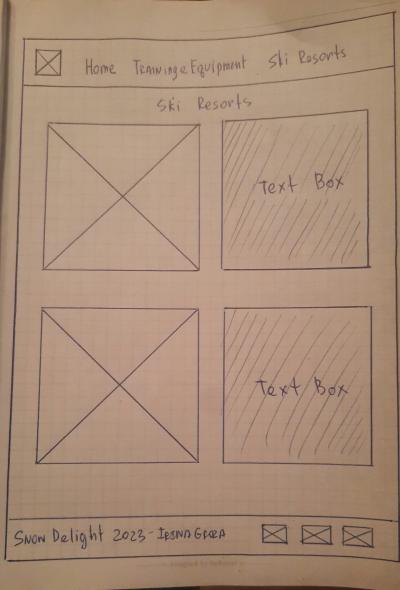 Home Training & Equipment Ski Resorts
Ski Resorts
Text Box
Text Box
Snow Delight 2023 -